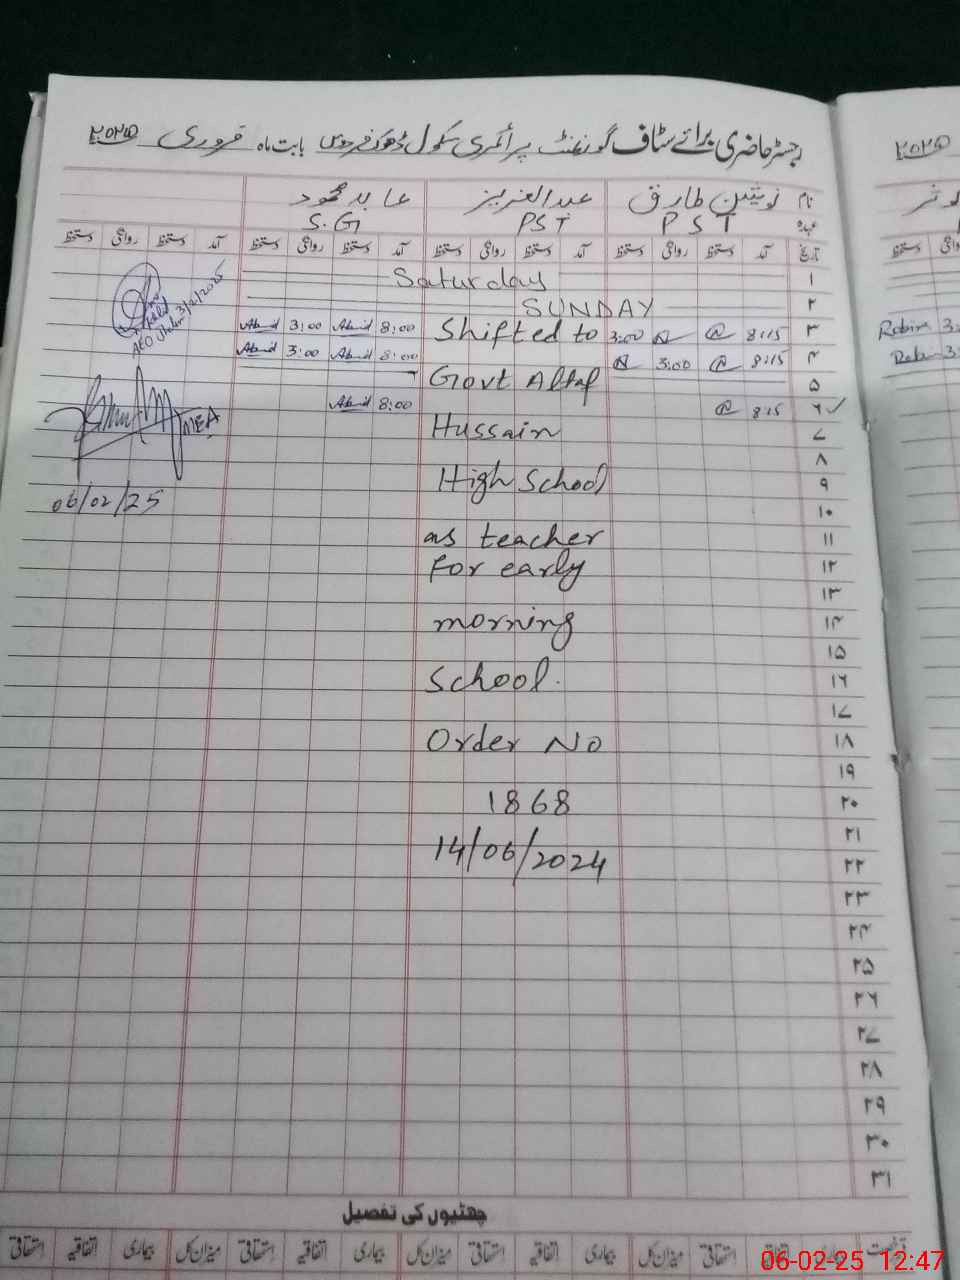 رجسٹر حاضری برائے سٹاف گورنمنٹ پرائمری سکول ڈھوک فردوس بابت ماہ فروری ۲۰۲۵
نام نوشین طارق عبدالعزیز عابد محمود
عہدہ P S T PST S.G
تاریخ آمد دستخط روانگی دستخط آمد دستخط روانگی دستخط آمد دستخط روانگی دستخط آمد دستخط روانگی دستخط
۱ Saturday
۲ SUNDAY
۳ 8:15 3:00 Shifted to 8:00 Abid 3:00 Abid
۴ 8:15 3:00 8:00 Abid 3:00 Abid
۵ Govt Altaf
۶ ✓ 8:15 8:00 Abid
۷ Hussain
۸
۹ High School
۱۰
۱۱ as teacher
۱۲ For early
۱۳
۱۴ morning
۱۵
۱۶ School.
۱۷
۱۸ Order No
۱۹
۲۰ 1868
۲۱
۲۲ 14/06/2024
۲۳
۲۴
۲۵
۲۶
۲۷
۲۸
۲۹
۳۰
۳۱
AEO
3/2/2025
MEA
06/02/25
چھٹیوں کی تفصیل
اتفاقیہ بیماری میزان کل استحقاقی اتفاقیہ بیماری میزان کل استحقاقی اتفاقیہ بیماری میزان کل استحقاقی
۲۰۲۵
دستخط
Robina 3:
3:
06-02-25 12:47